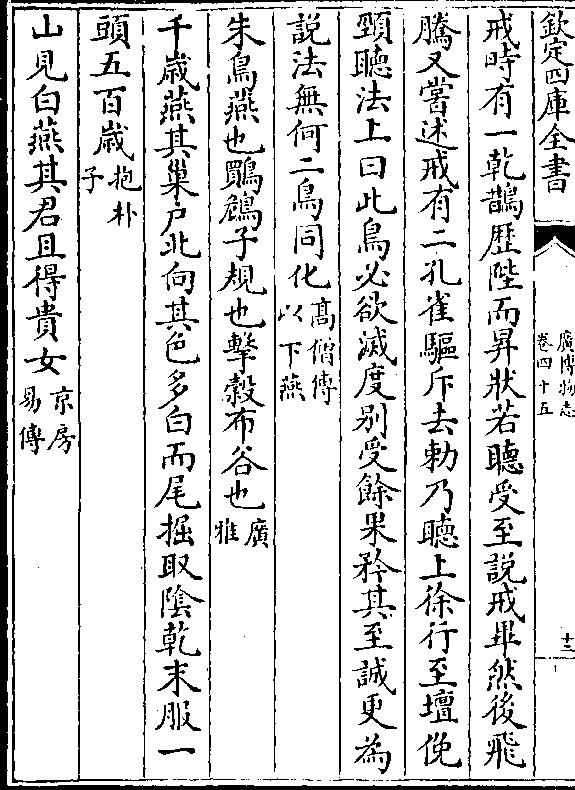 欽定四庫全書
廣博物志
卷四十五
十三
戒時有一乾鵲歴陛而昇狀若聽受至說戒畢然後飛
騰又嘗述戒有二孔雀驅斥去勅乃聽上徐行至壇俛
頸聽法上曰此鳥必欲滅度别受餘果矜其至誠更為
說法無何二鳥同化高僧傳以下燕
朱鳥燕也鷤鴂子規也擊榖布谷也廣雅
千歲燕其巢戸北向其色多白而尾掘取陰乾末服一
頭五百歲抱朴子
山見白燕其君且得貴女京房易傳